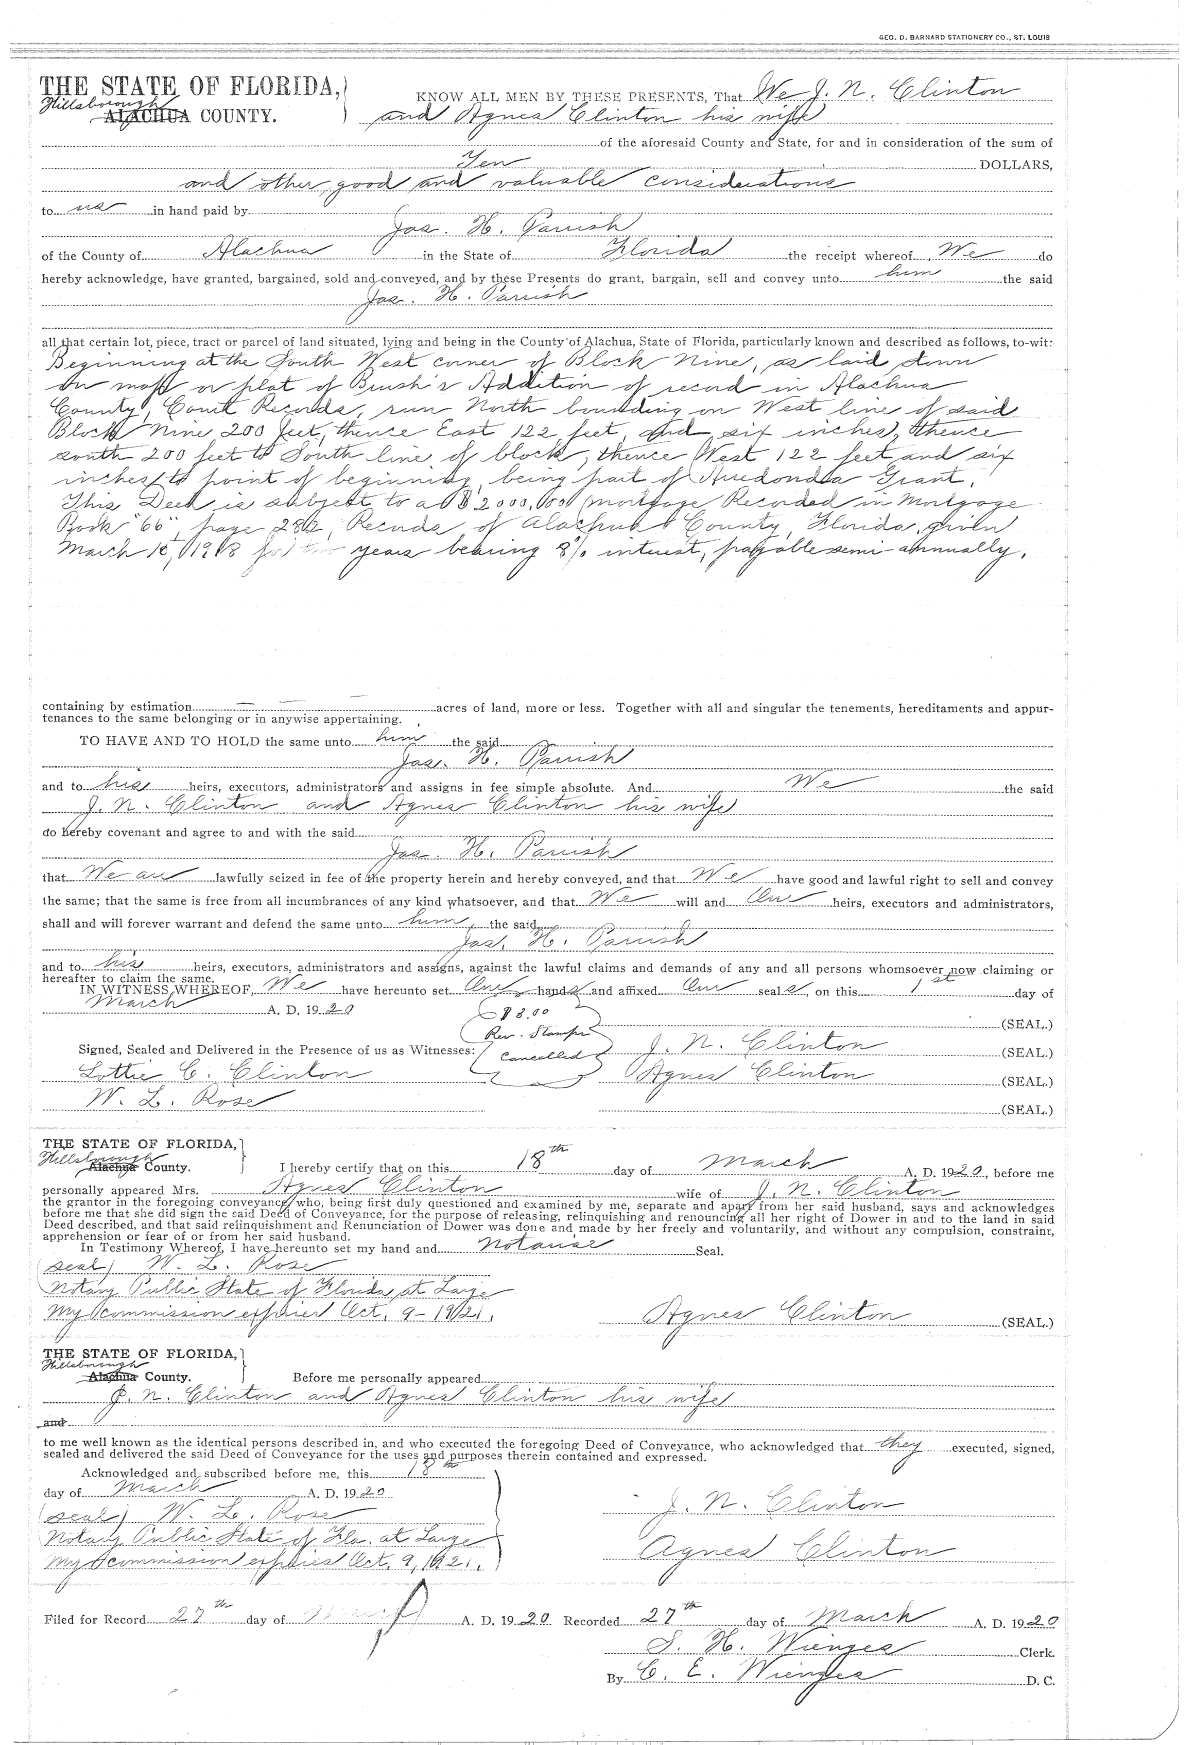 GEO. D. BARNARD STATIONERY CO., ST. LOUIS
THE STATE OF FLORIDA,
Hillsborough
ALACHUA COUNTY.
KNOW ALL MEN BY THESE PRESENTS, That We J. N. Clinton
and Agnes Clinton his wife
of the aforesaid County and State, for and in consideration of the sum of
Ten DOLLARS,
and other good and valuable considerations
to us in hand paid by
Jas. H. Parrish
of the County of Alachua in the State of Florida the receipt whereof We do
hereby acknowledge, have granted, bargained, sold and conveyed, and by these Presents do grant, bargain, sell and convey unto him the said
Jas. H. Parrish
all that certain lot, piece, tract or parcel of land situated, lying and being in the County of Alachua, State of Florida, particularly known and described as follows, to-wit:
Beginning at the South West corner of Block Nine, as laid down
on map or plat of Brush's Addition of record in Alachua
County, Court Records, run North bounding on West line of said
Block Nine 200 feet, thence East 122 feet, and six inches, thence
south 200 feet to South line of block, thence West 122 feet and six
inches to point of beginning, being part of Arredondo Grant.
This Deed is subject to a $2000.00 mortgage Recorded in Mortgage
Book "66" page 282, Records of Alachua County, Florida, given
March 1918 for two years bearing 8% interest, payable semi-annually.
containing by estimation — — — acres of land, more or less. Together with all and singular the tenements, hereditaments and appur-
tenances to the same belonging or in anywise appertaining.
TO HAVE AND TO HOLD the same unto him the said
Jas. H. Parrish
and to his heirs, executors, administrators and assigns in fee simple absolute. And We the said
J. N. Clinton and Agnes Clinton his wife
do hereby covenant and agree to and with the said
Jas. H. Parrish
that We are lawfully seized in fee of the property herein and hereby conveyed, and that We have good and lawful right to sell and convey
the same; that the same is free from all incumbrances of any kind whatsoever, and that We will and Our heirs, executors and administrators,
shall and will forever warrant and defend the same unto him the said
Jas. H. Parrish
and to his heirs, executors, administrators and assigns, against the lawful claims and demands of any and all persons whomsoever now claiming or
hereafter to claim the same.
IN WITNESS WHEREOF, We have hereunto set Our hands and affixed Our seals, on this 1st day of
March A. D. 1920
$3.00
Rev. Stamps
Cancelled
(SEAL.)
Signed, Sealed and Delivered in the Presence of us as Witnesses:
J. N. Clinton (SEAL.)
Lottie C. Clinton
Agnes Clinton (SEAL.)
W. L. Rose
(SEAL.)
THE STATE OF FLORIDA,
Hillsborough
Alachua County.
I hereby certify that on this 18th day of March A. D. 1920, before me
personally appeared Mrs. Agnes Clinton wife of J. N. Clinton
the grantor in the foregoing conveyance, who, being first duly questioned and examined by me, separate and apart from her said husband, says and acknowledges
before me that she did sign the said Deed of Conveyance, for the purpose of releasing, relinquishing and renouncing all her right of Dower in and to the land in said
Deed described, and that said relinquishment and Renunciation of Dower was done and made by her freely and voluntarily, and without any compulsion, constraint,
apprehension or fear of or from her said husband.
In Testimony Whereof, I have hereunto set my hand and Notarial Seal.
(seal) W. L. Rose
Notary Public State of Florida at Large
My commission expires Oct. 9-1921.
Agnes Clinton (SEAL.)
THE STATE OF FLORIDA,
Hillsborough
Alachua County.
Before me personally appeared
J. N. Clinton and Agnes Clinton his wife
and
to me well known as the identical persons described in, and who executed the foregoing Deed of Conveyance, who acknowledged that they executed, signed,
sealed and delivered the said Deed of Conveyance for the uses and purposes therein contained and expressed.
Acknowledged and subscribed before me, this 18th
day of March A. D. 1920
J. N. Clinton
(seal) W. L. Rose
Notary Public State of Fla. at Large
Agnes Clinton
My commission expires Oct. 9, 1921.
Filed for Record 27th day of March A. D. 1920 Recorded 27th day of March A. D. 1920
S. H. Wienges Clerk.
By C. E. Wienges D. C.